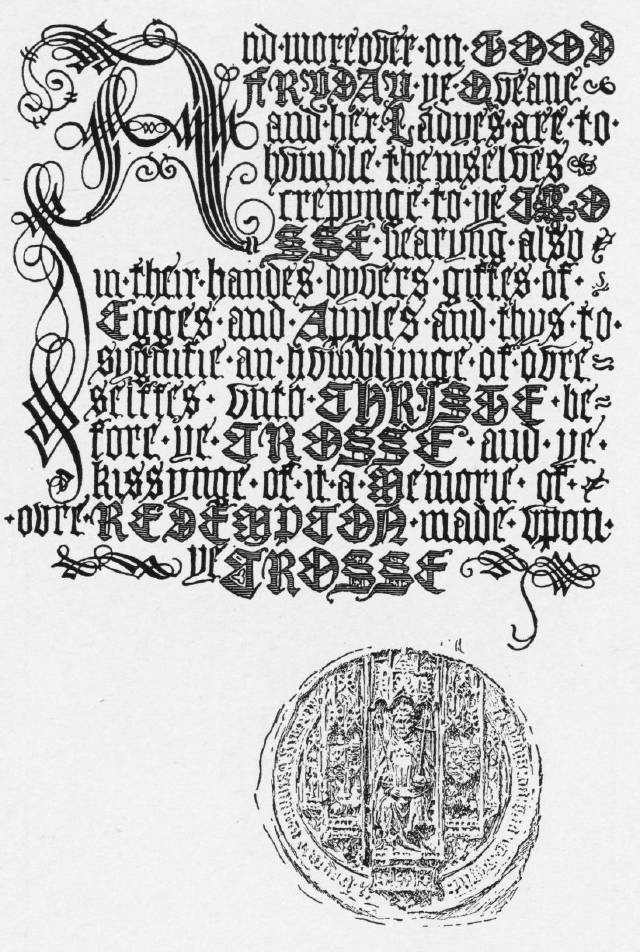 And·moreover·on·GOOD
FRYDAY·ye·Queane
and·her·Ladyes·are·to·
hvmble·themselves
crepynge·to·ye
CROSSE·bearyng·also
in·their·handes·dyvers·giftes·of·
Egges·and·Apples·and·thys·to·
sygnifie·an·hvmblynge·of·ovre
selffes·vnto·CHRISTE·be=
fore·ye·CROSSE·and·ye·
kissynge·of·it·a·Memorie·of·
·ovre·REDEMPTON·made·vpon·
ye CROSSE